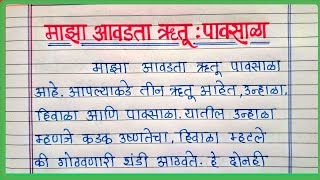 माझा आवडता ऋतू : पावसाळा
माझा आवडता ऋतू पावसाळा
आहे. आपल्याकडे तीन ऋतू आहेत, उन्हाळा,
हिवाळा आणि पावसाळा. यातील उन्हाळा
म्हणजे कडक उष्णतेचा, हिवाळा म्हटले
की गोठवणारी थंडी आठवते. हे दोनही